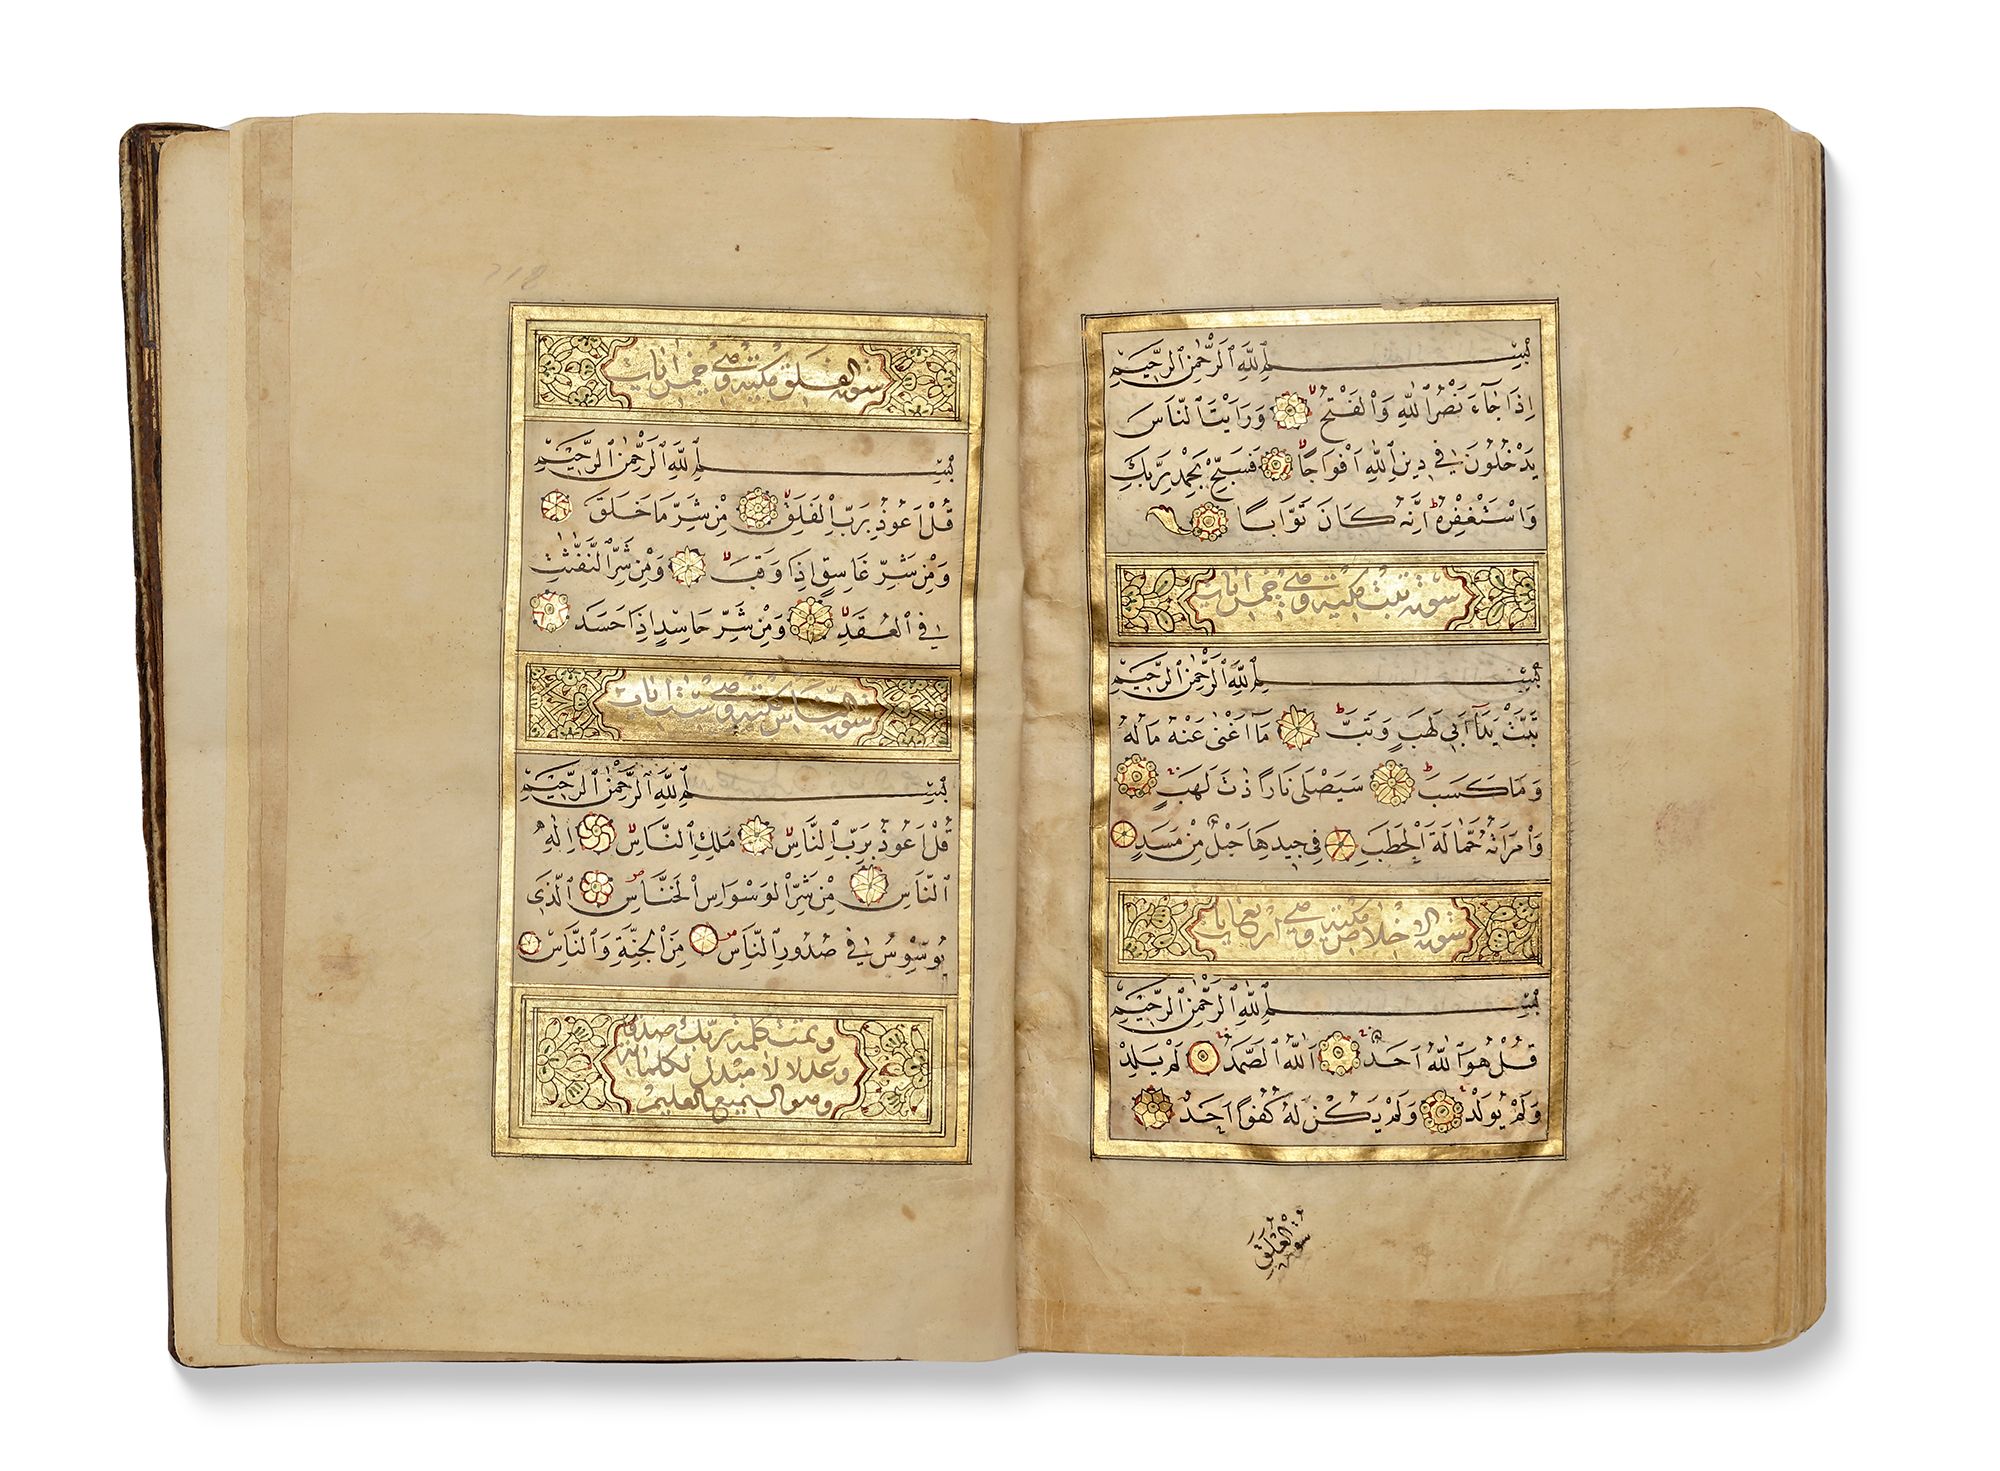 بِسْمِ اللهِ الرَّحْمٰنِ الرَّحِيْمِ
اِذَا جَآءَ نَصْرُ اللهِ وَالْفَتْحُ وَرَاَيْتَ النَّاسَ
يَدْخُلُونَ فِي دِينِ اللهِ اَفْوَاجًا فَسَبِّحْ بِحَمْدِ رَبِّكَ
وَاسْتَغْفِرْهُ اِنَّهُ كَانَ تَوَّابًا
سورة تبت مكية وهي خمس ايات
بِسْمِ اللهِ الرَّحْمٰنِ الرَّحِيْمِ
تَبَّتْ يَدَآ اَبِي لَهَبٍ وَتَبَّ مَآ اَغْنٰى عَنْهُ مَالُهُ
وَمَا كَسَبَ سَيَصْلٰى نَارًا ذَاتَ لَهَبٍ
وَامْرَاَتُهُ حَمَّالَةَ الْحَطَبِ فِي جِيدِهَا حَبْلٌ مِنْ مَسَدٍ
سورة الاخلاص مكية وهي اربع ايات
بِسْمِ اللهِ الرَّحْمٰنِ الرَّحِيْمِ
قُلْ هُوَ اللهُ اَحَدٌ اَللهُ الصَّمَدُ لَمْ يَلِدْ
وَلَمْ يُولَدْ وَلَمْ يَكُنْ لَهُ كُفُوًا اَحَدٌ
سورة الفلق
سورة الفلق مكية وهي خمس ايات
بِسْمِ اللهِ الرَّحْمٰنِ الرَّحِيْمِ
قُلْ اَعُوذُ بِرَبِّ الْفَلَقِ مِنْ شَرِّ مَا خَلَقَ
وَمِنْ شَرِّ غَاسِقٍ اِذَا وَقَبَ وَمِنْ شَرِّ النَّفّٰثٰتِ
فِي الْعُقَدِ وَمِنْ شَرِّ حَاسِدٍ اِذَا حَسَدَ
سورة الناس مكية وهي ست ايات
بِسْمِ اللهِ الرَّحْمٰنِ الرَّحِيْمِ
قُلْ اَعُوذُ بِرَبِّ النَّاسِ مَلِكِ النَّاسِ اِلٰهِ
النَّاسِ مِنْ شَرِّ الْوَسْوَاسِ الْخَنَّاسِ اَلَّذِي
يُوَسْوِسُ فِي صُدُورِ النَّاسِ مِنَ الْجِنَّةِ وَالنَّاسِ
وتمت كلمة ربك صدقا
وعدلا لا مبدل لكلماته
وهو السميع العليم